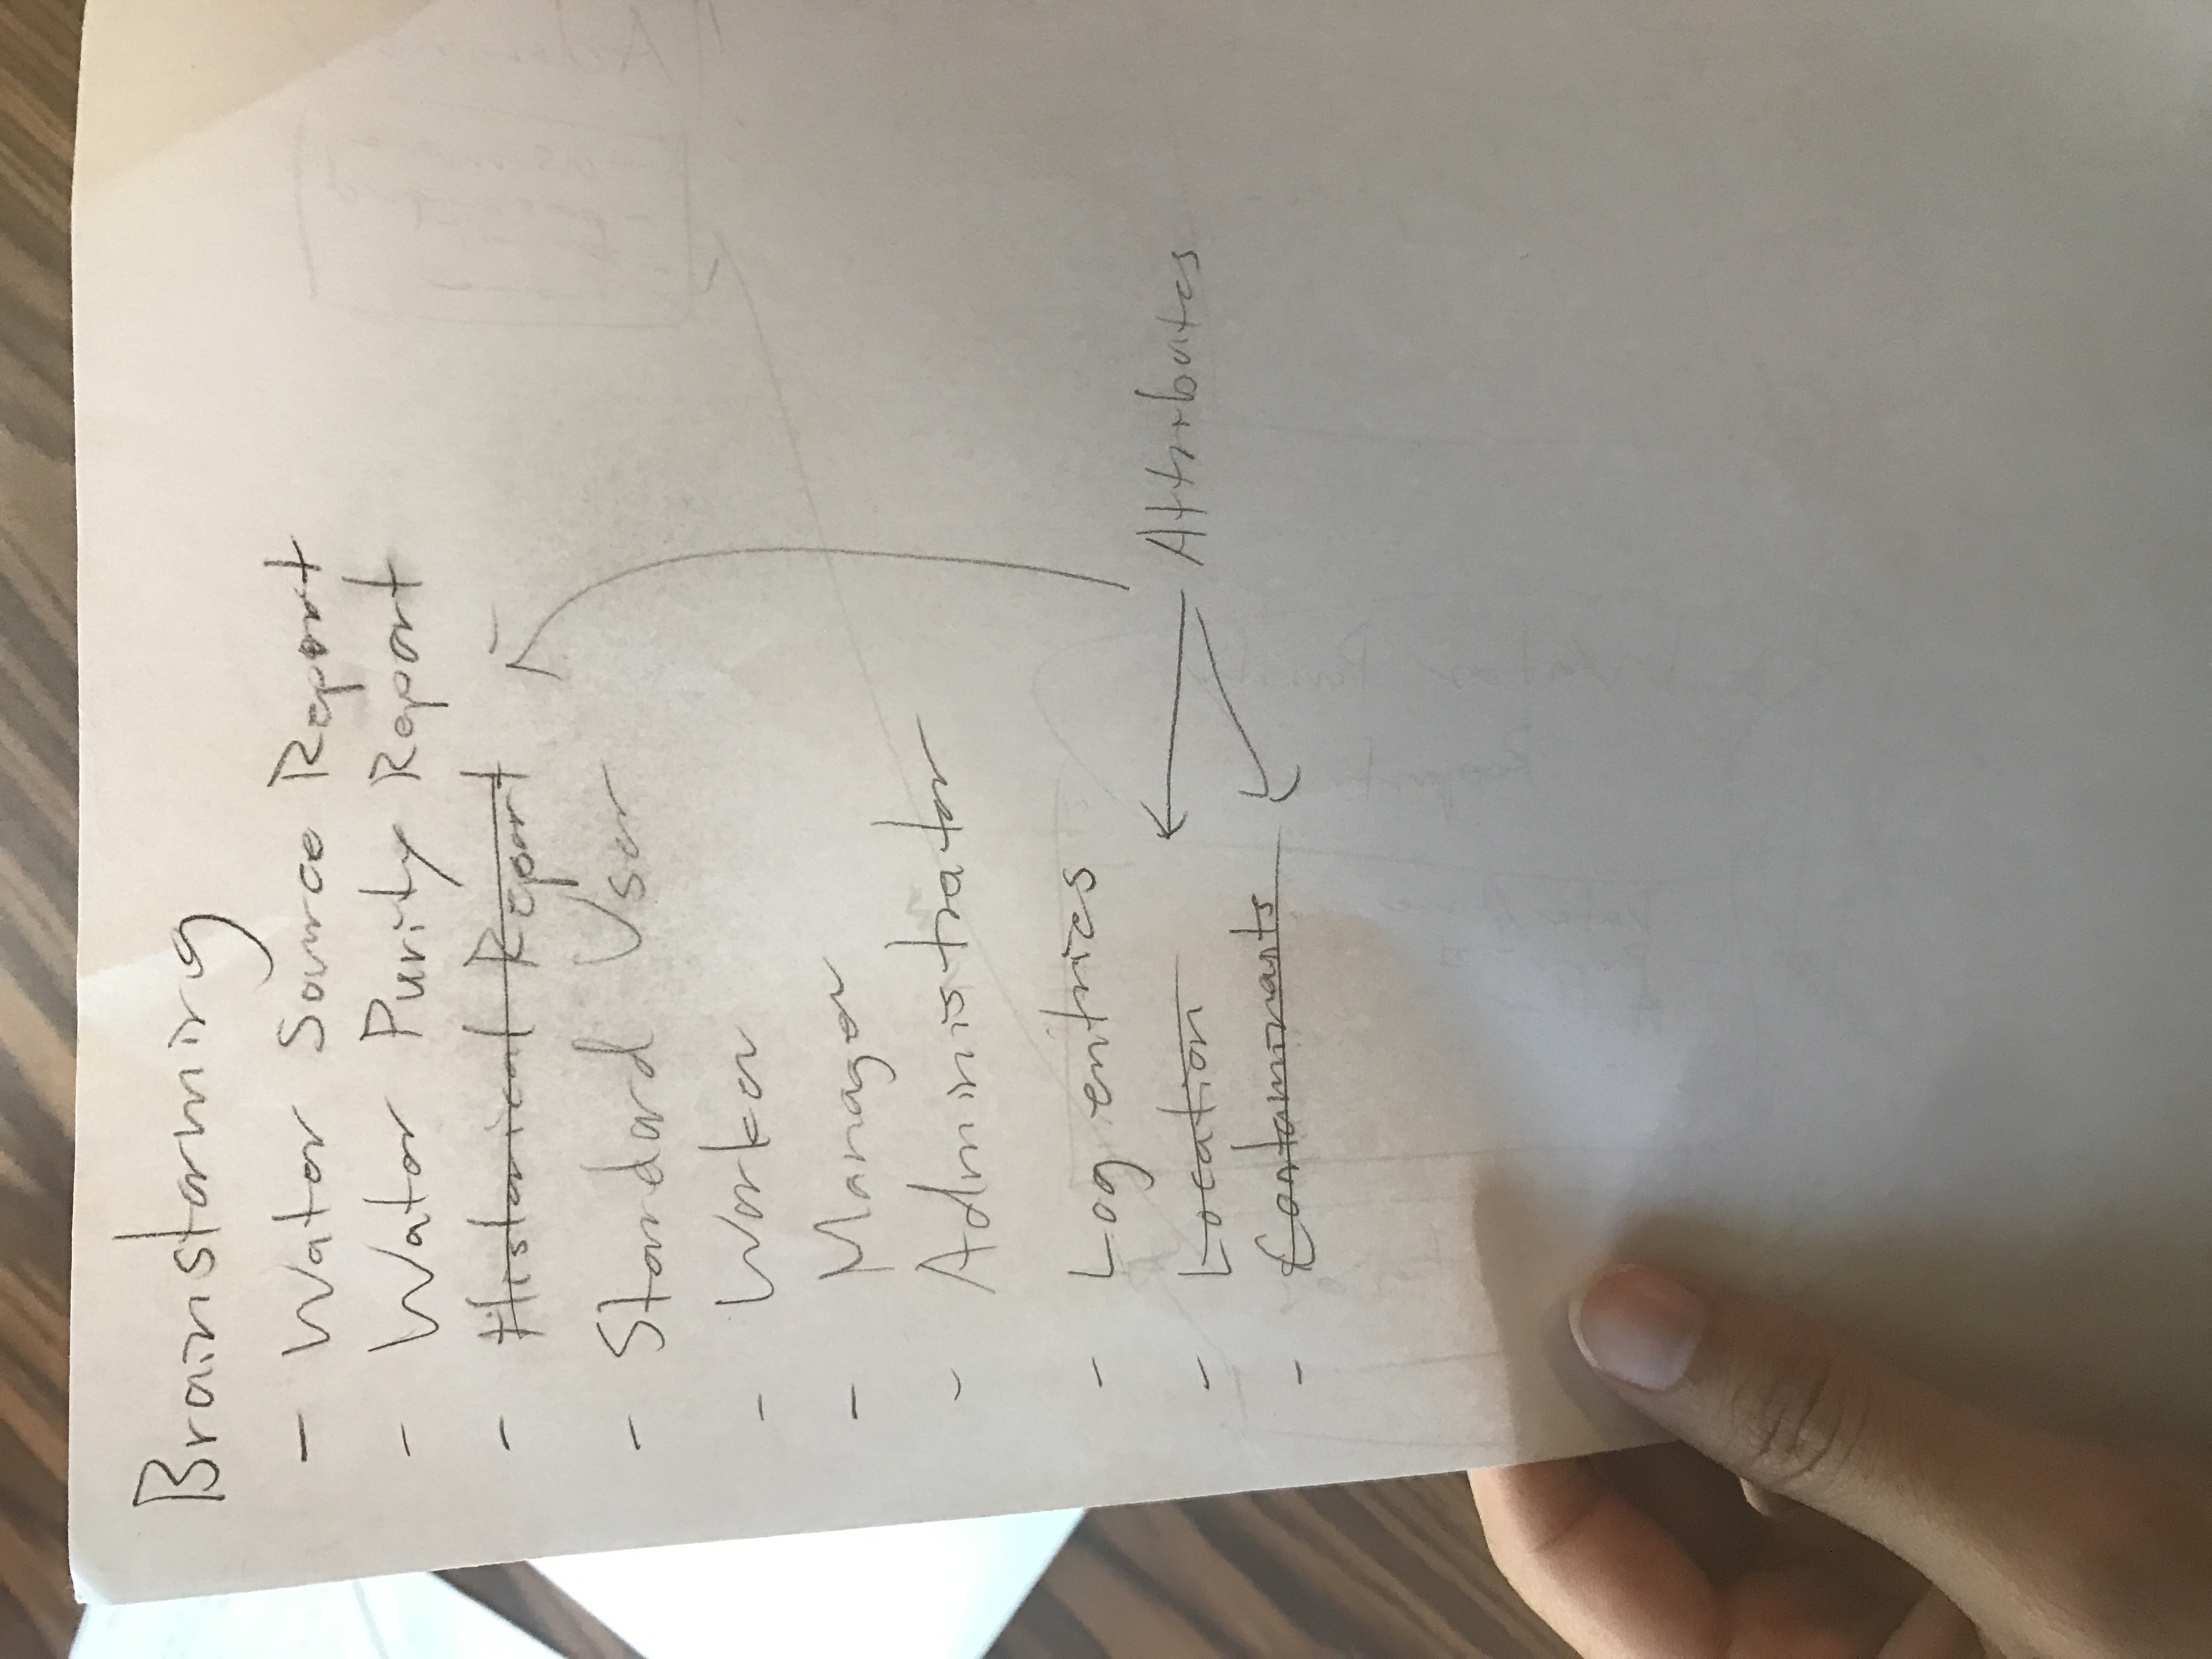 Brainstorming
- Water Source Report
- Water Purity Report
- Historical Report
- Standard User
- Worker
- Manager
- Administrator
- Log entries
- Location
Attributes
- Contaminants